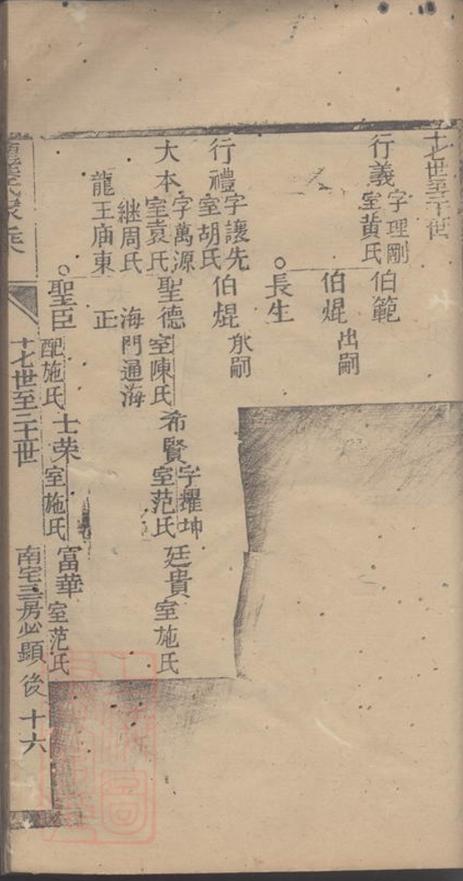 十七世至二十世
行義 字理剛 室黃氏
伯範
伯焜 出嗣
長生
行禮 字讓先 室胡氏
伯焜 承嗣
大本 字萬源 室袁氏 継周氏
龍王庙東
聖德 室陳氏
海門通海
正
希賢 字耀坤 室范氏
廷貴 室施氏
聖臣 配施氏
士荣 室施氏
富華 室范氏
十七世至二十世
南宅三房必顯後 十六